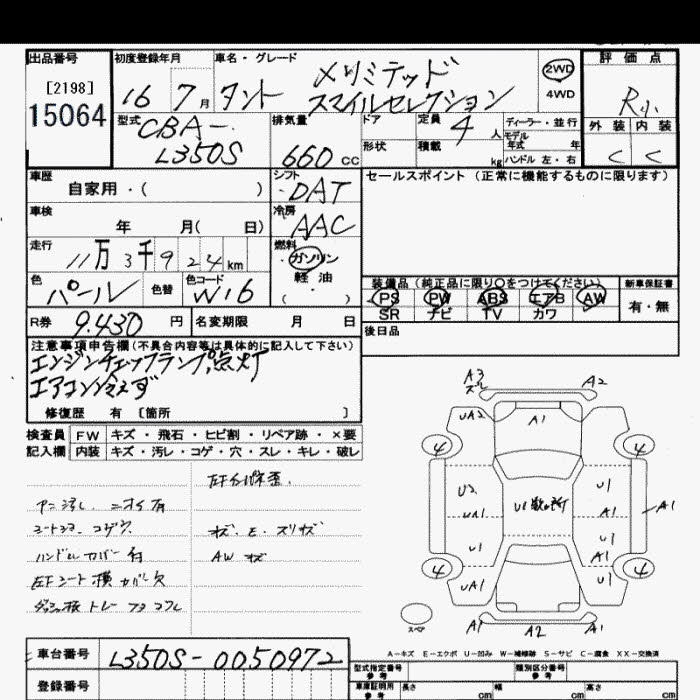 出品番号 初度登録年月 車名・グレード 評価点
[2198] メリミテッド 2WD
15064 16 7月 タント スマイルセレクション 4WD R小
型式 CBA- 排気量 ドア 定員 4人 ディーラー・並行 外装 内装
L350S 660cc 形状 積載 kg モデル年式 年 C C
ハンドル 左・右
車歴 シフト セールスポイント (正常に機能するものに限ります)
自家用・( ) DAT
車検 冷房
年 月( 日) AAC
走行 燃料
11万3千924km ガソリン
色 色替 色コード 軽油 装備品 (純正品に限り○をつけてください) 新車保証書
パール W16 ( ) PS PW ABS エアB AW 有・無
SR ナビ TV カワ
R券 9.430円 名変期限 月 日 後日品
注意事項申告欄(不具合内容等は具体的に記入して下さい)
エンジンチェックランプ点灯
エアコン冷えず
修復歴 有 [箇所 ]
検査員 FW キズ・飛石・ヒビ割・リペア跡・×要
記入欄 内装 キズ・汚レ・コゲ・穴・スレ・キレ・破レ
A3 ズレ A2
UA2 A1
4 4
U2 U1 散数ヶ所 U1
UA1 A1 A1
U1 U1
A1
4 4
UA1 U1
A1 A2 A1
スペア
内ニ汚レ ニオイ有
シートシミ コゲ穴 キズ・E・スリキズ
ハンドルカバー付 AW キズ
左Fシート横カバー欠
A-キズ E-エクボ U-凹み W-補修跡 S-サビ C-腐食 XX-交換済
車台番号 L350S-0050972 型式指定番号 参考 類別区分番号 参考
登録番号 車庫証明用 参考 長さ cm 幅 cm 高さ cm